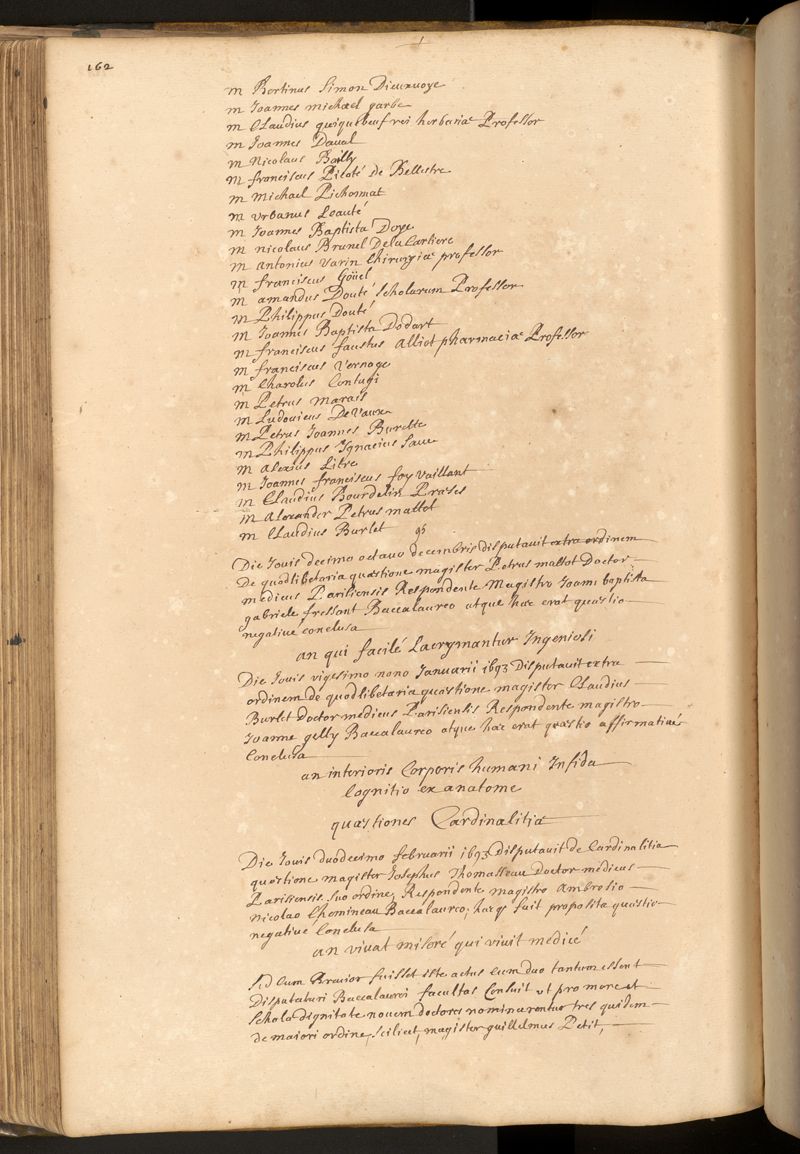 162
m Bertinus Simon Dieuxvoye
m Joannes michael garbe
m Claudius quiquebeuf rei herbariae Professor
m Joannes Daual
m Nicolaus Bailly
m franciscus Pilote de Bellestre
m Michael Pichonnat
m Vrbanus Leauté
m Joannes Baptista Doye
m nicolaus Brunel De la Carliere
m antonius Varin Chirurgiae professor
m franciscus Göuel
m amandus Douté Scholarum Professor
m Philippus Douté
m Joannes Baptista Dodart
m franciscus faustus alliot pharmaciae Professor
m franciscus Vernage
m Charolus Contugi
m Petrus Marais
m Ludouicus De Vaux
m Petrus Joannes Burette
m Philippus Ignacius Saue
m alexius Litre
m Joannes franciscus foy vaillant
m Claudius Bourdelin Praeses
m Alexander Petrus mattot
m Claudius Burlet
Die Jouis decimo octauo decembris disputauit extra ordinem
De quodlibetaria quaestione magister Petrus mattot Doctor
medicus Parisiensis Respondente Magistro Joani baptista
gabriele fressant Baccalaureo atque haec erat quaestio
negatiué conclusa
an qui facilé Lacrymantur Ingeniosi
Die Jouis vigesimo nono Januarii 1693 Disputauit extra
ordinem de quodlibetaria quaestione magister Claudius
Burlet Doctor medicus Parisiensis Respondente magistro
Joanne gelly Baccalaureo atque haec erat quaestio affirmatiué
Conclusa
an interioris Corporis humani Infida
Cognitio ex anatome
quaestiones Cardinalitiae
Die Jouis duodecimo februarii 1693 Disputauit de Cardinalitia
quaestione magister Josephus Thomasseau Doctor medicus
Parisiensis suo ordine, Respondente magistro Ambrosio
Nicolao Chemineau Baccalaureo; haecq fuit proposita quaestio
negatiue Conclusa
an viuat miseré qui viuit medicé
Sed Cum Breuior fuisset iste actus Cum duo tantum essent
Disputaturi Baccalaurei facultas Censuit vt pro more et
Schola dignitate nouem doctores nominarentur tres quidem
de maiori ordine, scilicet, magister guillelmus Petit,